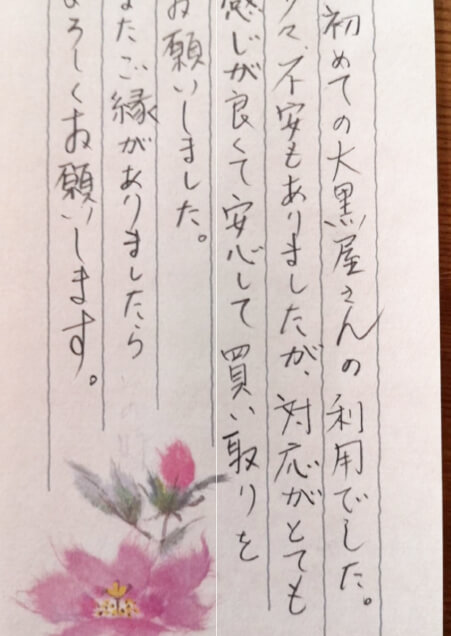 初めての大黒屋さんの利用でした。
少々、不安もありましたが、対応がとても
感じが良くて安心して買い取りを
お願いしました。
またご縁がありましたら
よろしくお願いします。